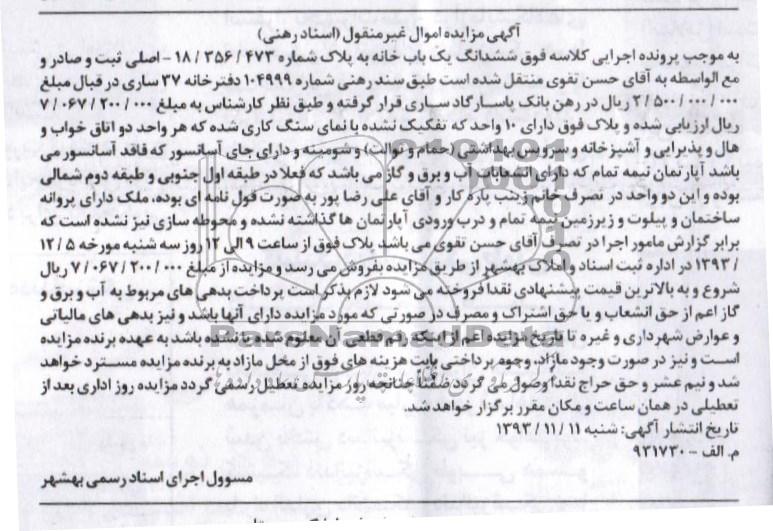 آگهی مزایده اموال غیر منقول (اسناد رهنی)
به موجب پرونده اجرایی کلاسه فوق ششدانگ یک باب خانه به پلاک شماره ۴۷۳ / ۳۵۶ / ۱۸ - اصلی ثبت و صادر و
مع الواسطه به آقای حسن تقوی منتقل شده است طبق سند رهنی شماره ۱۰۴۹۹۹ دفترخانه ۳۷ ساری در قبال مبلغ
۲ / ۵۰۰ / ۰۰۰ / ۰۰۰ ریال در رهن بانک پاسارگاد ساری قرار گرفته و طبق نظر کارشناس به مبلغ ۷ / ۰۶۷ / ۲۰۰ / ۰۰۰
ریال ارزیابی شده و پلاک فوق دارای ۱۰ واحد که تفکیک نشده با نمای سنگ کاری شده که هر واحد دو اتاق خواب و
هال و پذیرایی و آشپزخانه و سرویس بهداشتی (حمام و توالت) و شومینه و دارای جای آسانسور که فاقد آسانسور می
باشد آپارتمان نیمه تمام که دارای انشعابات آب و برق و گاز می باشد که فعلا در طبقه اول جنوبی و طبقه دوم شمالی
بوده و این دو واحد در تصرف خانم زینب پازه کار و آقای علی رضا پور به صورت قول نامه ای بوده، ملک دارای پروانه
ساختمان و پیلوت و زیرزمین نیمه تمام و درب ورودی آپارتمان ها گذاشته نشده و محوطه سازی نیز نشده است که
برابر گزارش مامور اجرا در تصرف آقای حسن تقوی می باشد پلاک فوق از ساعت ۹ الی ۱۲ روز سه شنبه مورخه ۵ / ۱۲
/ ۱۳۹۳ در اداره ثبت اسناد و املاک بهشهر از طریق مزایده بفروش می رسد و مزایده از مبلغ ۷ / ۰۶۷ / ۲۰۰ / ۰۰۰ ریال
شروع و به بالاترین قیمت پیشنهادی نقدا فروخته می شود لازم بذکر است پرداخت بدهی های مربوط به آب و برق و
گاز اعم از حق انشعاب و یا حق اشتراک و مصرف در صورتی که مورد مزایده دارای آنها باشد و نیز بدهی های مالیاتی
و عوارض شهرداری و غیره تا تاریخ مزایده اعم از اینکه رقم قطعی آن معلوم شده یا نشده باشد به عهده برنده مزایده
است و نیز در صورت وجود مازاد، وجوه پرداختی بابت هزینه های فوق از محل مازاد به برنده مزایده مسترد خواهد
شد و نیم عشر و حق حراج نقدا وصول می گردد ضمنا چنانچه روز مزایده تعطیل رسمی گردد مزایده روز اداری بعد از
تعطیلی در همان ساعت و مکان مقرر برگزار خواهد شد.
تاریخ انتشار آگهی: شنبه ۱۱ / ۱۱ / ۱۳۹۳
م. الف - ۹۲۱۷۳۰
مسوول اجرای اسناد رسمی بهشهر
ParsNamadData